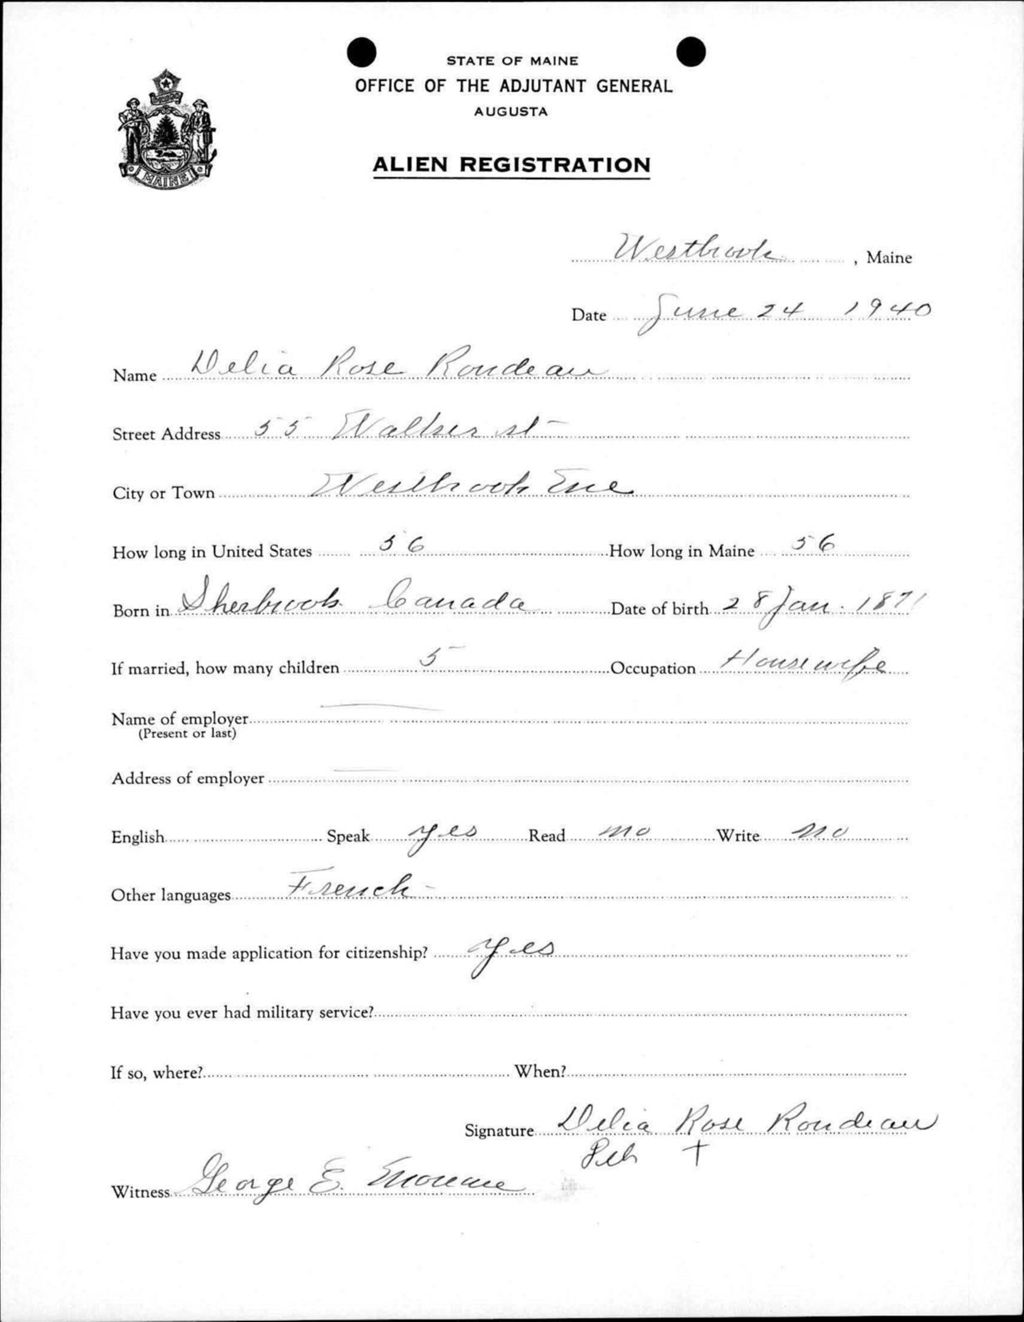 STATE OF MAINE
OFFICE OF THE ADJUTANT GENERAL
AUGUSTA
ALIEN REGISTRATION
MAINE
Westbrook, Maine
Date June 24 1940
Name Delia Rose Rondeau
Street Address 55 Walker st
City or Town Westbrook Me
How long in United States 56 How long in Maine 56
Born in Sherbrook Canada Date of birth 28 Jan. 1871
If married, how many children 5 Occupation Housewife
Name of employer
(Present or last)
Address of employer
English Speak yes Read no Write no
Other languages French
Have you made application for citizenship? yes
Have you ever had military service?
If so, where? When?
Signature Delia Rose Rondeau
Witness George E.